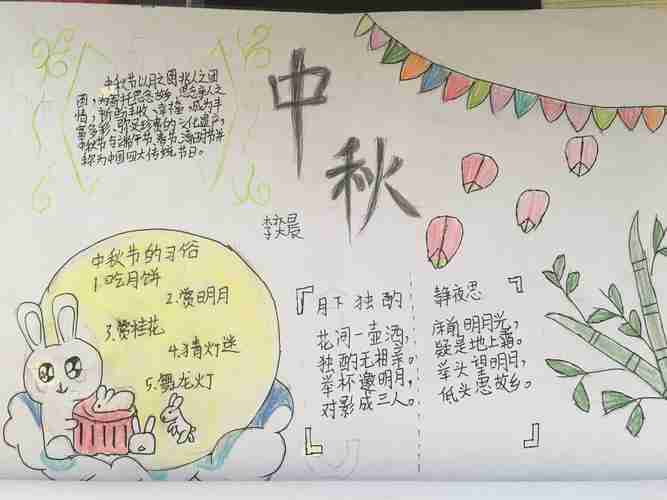 中秋节以月之圆兆人之团
圆,为寄托思念故乡,思念亲人之
情,祈盼丰收、幸福,成为丰
富多彩、弥足珍贵的文化遗产,
中秋节与端午节、春节、清明节并
称为中国四大传统节日。
中秋
李奕晨
中秋节的习俗
1.吃月饼
2.赏明月
3.赏桂花
4.猜灯迷
5.舞龙灯
月下独酌
花间一壶酒,
独酌无相亲。
举杯邀明月,
对影成三人。
静夜思
床前明月光,
疑是地上霜。
举头望明月,
低头思故乡。